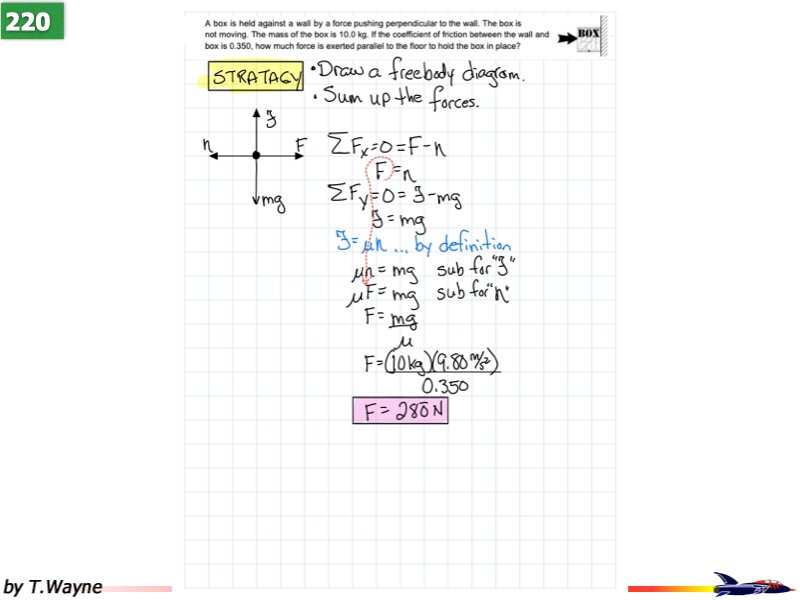 220
A box is held against a wall by a force pushing perpendicular to the wall. The box is
not moving. The mass of the box is 10.0 kg. If the coefficient of friction between the wall and
box is 0.350, how much force is exerted parallel to the floor to hold the box in place?
BOX
STRATAGY
• Draw a freebody diagram.
• Sum up the forces.
ℑ
n
F
mg
ΣFx=0=F-n
F=n
ΣFy=0=ℑ-mg
ℑ=mg
ℑ=μn ... by definition
μn=mg sub for "ℑ"
μF=mg sub for "n"
F=mg
μ
F=(10kg)(9.80 m/s²)
0.350
F=280̄N
by T.Wayne